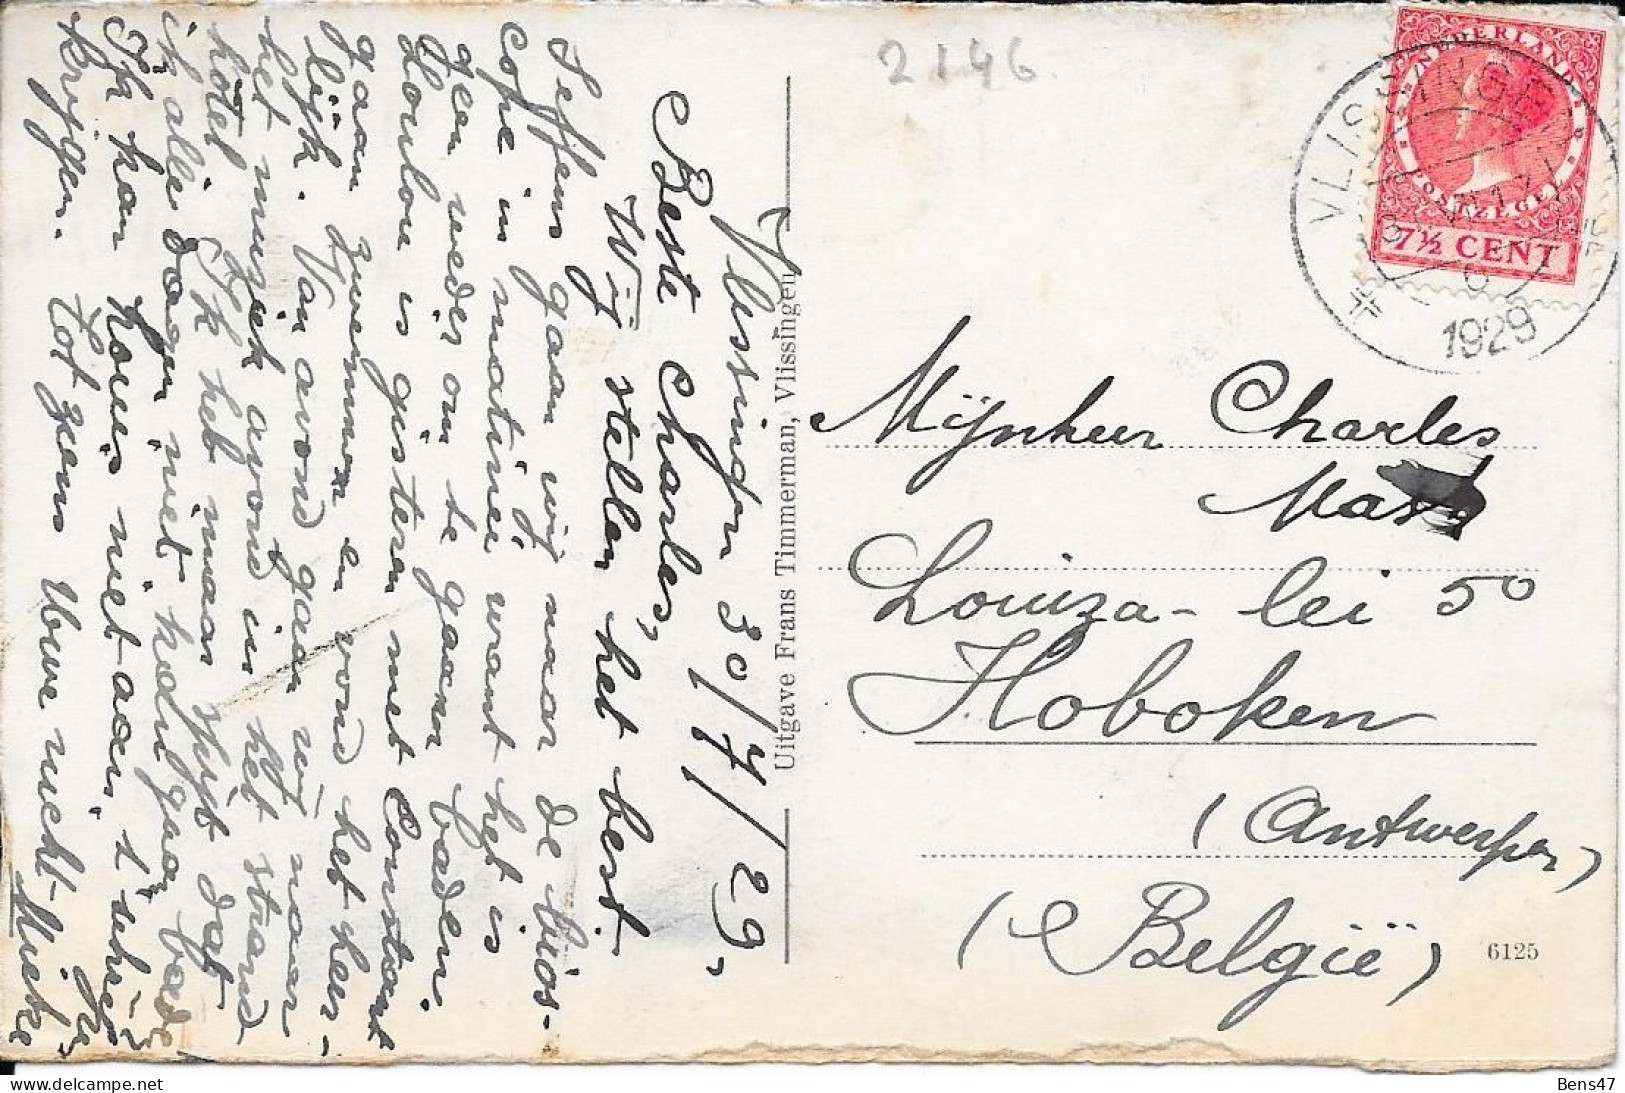 2146
NEDERLAND
POSTZEGEL
7½ CENT
VLISSINGEN
1929
Vlissingen 30/7/29,
Beste Charles,
Wij stellen het best
Seffens gaan wij naar de bios-
cope in matinee want het is
geen weder om te gaan baden.
Loulou is gisteren met Constant
gaan zwemmen en vond het heer-
lijk. Van avond gaan wij naar
het muziek avond in het strand
hôtel. Ik heb maar spijt dat
ik alle dagen niet kan gaan baden
Ik kan
niet aan
krijgen. Tot ziens Uwe nicht
Mieke
Uitgave Frans Timmerman, Vlissingen
Mijnheer Charles
Louiza-lei 50
Hoboken
(Antwerpen)
(België)
6125
Bens47